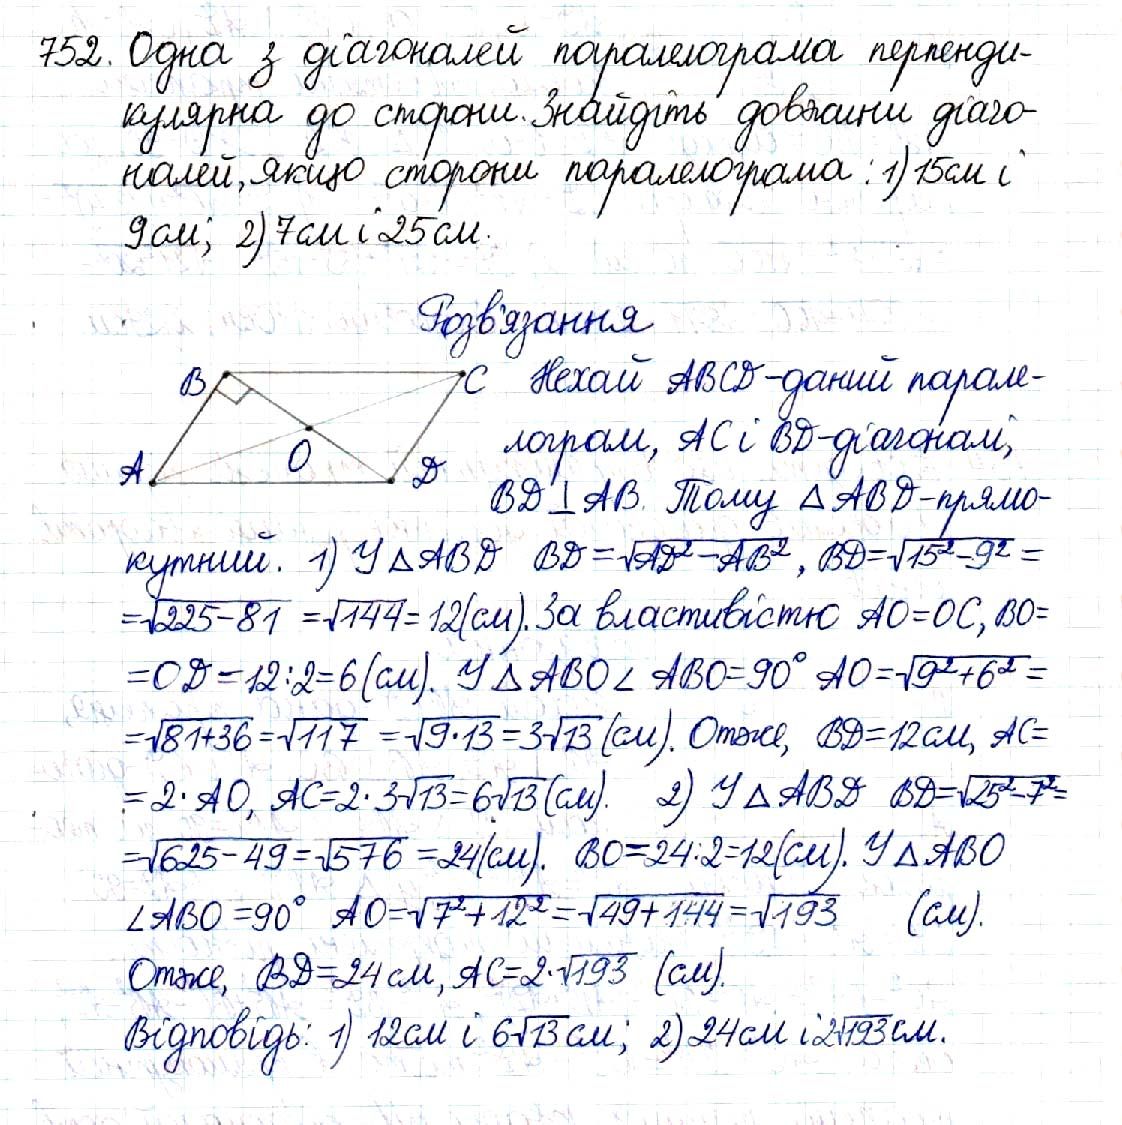 752. Одна з діагоналей паралелограма перпенди-
кулярна до сторони. Знайдіть довжини діаго-
налей, якщо сторони паралелограма: 1) 15см і
9см; 2) 7см і 25см.
Розв'язання
B C Нехай ABCD-даний парале-
лограм, AC і BD-діагоналі,
A O D
BD⊥AB. Тому △ABD-прямо-
кутний. 1) У △ABD BD=√AD²-AB², BD=√15²-9²=
=√225-81 =√144=12(см). За властивістю AO=OC, BO=
=OD=12:2=6(см). У △ABO ∠ABO=90° AO=√9²+6²=
=√81+36=√117 =√9·13=3√13(см). Отже, BD=12см, AC=
=2·AO, AC=2·3√13=6√13(см). 2) У △ABD BD=√25²-7²=
=√625-49=√576=24(см). BO=24:2=12(см). У △ABO
∠ABO=90° AO=√7²+12²=√49+144=√193 (см).
Отже, BD=24см, AC=2·√193 (см).
Відповідь: 1) 12см і 6√13см; 2) 24см і 2√193см.